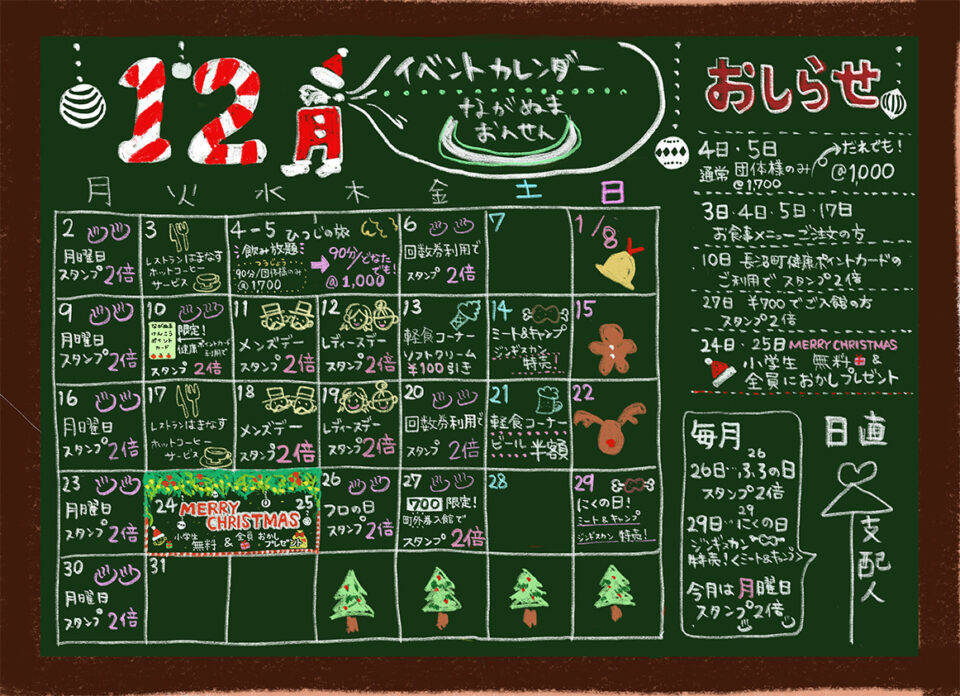 12月
イベントカレンダー
ながぬま
おんせん
月 火 水 木 金 土 日
2
月曜日
スタンプ2倍
3
レストランはまなす
ホットコーヒー
サービス
4-5 ひつじの旅
飲み放題
つうじょう
90分/団体様のみ
@1700
90分/どなた
でも!
@1,000
6
回数券利用で
スタンプ 2倍
7
1/8
9
月曜日
スタンプ2倍
10
ながぬま
けんこう
ポイント
カード
限定!
健康ポイントカード
利用で
スタンプ 2倍
11
メンズデー
スタンプ2倍
12
レディースデー
スタンプ2倍
13
軽食コーナー
ソフトクリーム
¥100引き
14
ミート&キャンプ
ジンギスカン
特売!
15
16
月曜日
スタンプ2倍
17
レストランはまなす
ホットコーヒー
サービス
18
メンズデー
スタンプ2倍
19
レディースデー
スタンプ2倍
20
回数券利用で
スタンプ 2倍
21
軽食コーナー
ビール 半額
22
23
月曜日
スタンプ2倍
24 25
MERRY
CHRISTMAS
小学生
無料 & 全員 おかし
プレゼント
26
フロの日
スタンプ2倍
27
700 限定!
町外券入館で!
スタンプ 2倍
28
29
にくの日!
ミート&キャンプ
ジンギスカン 特売!
30
月曜日
スタンプ2倍
31
おしらせ
4日・5日
通常 団体様のみ
@1,700
だれでも!
@1,000
3日・4日・5日・17日
お食事メニューご注文の方
10日 長沼町健康ポイントカードの
ご利用で スタンプ2倍
27日 ¥700でご入館の方
スタンプ2倍
24日・25日 MERRY CHRISTMAS
小学生 無料 &
全員におかしプレゼント
毎月
26
26日…ふろの日
スタンプ2倍
29
29日…にくの日
ジンギスカン
特売!<ミート&キャンプ>
今月は月曜日
スタンプ2倍
日直
支配人